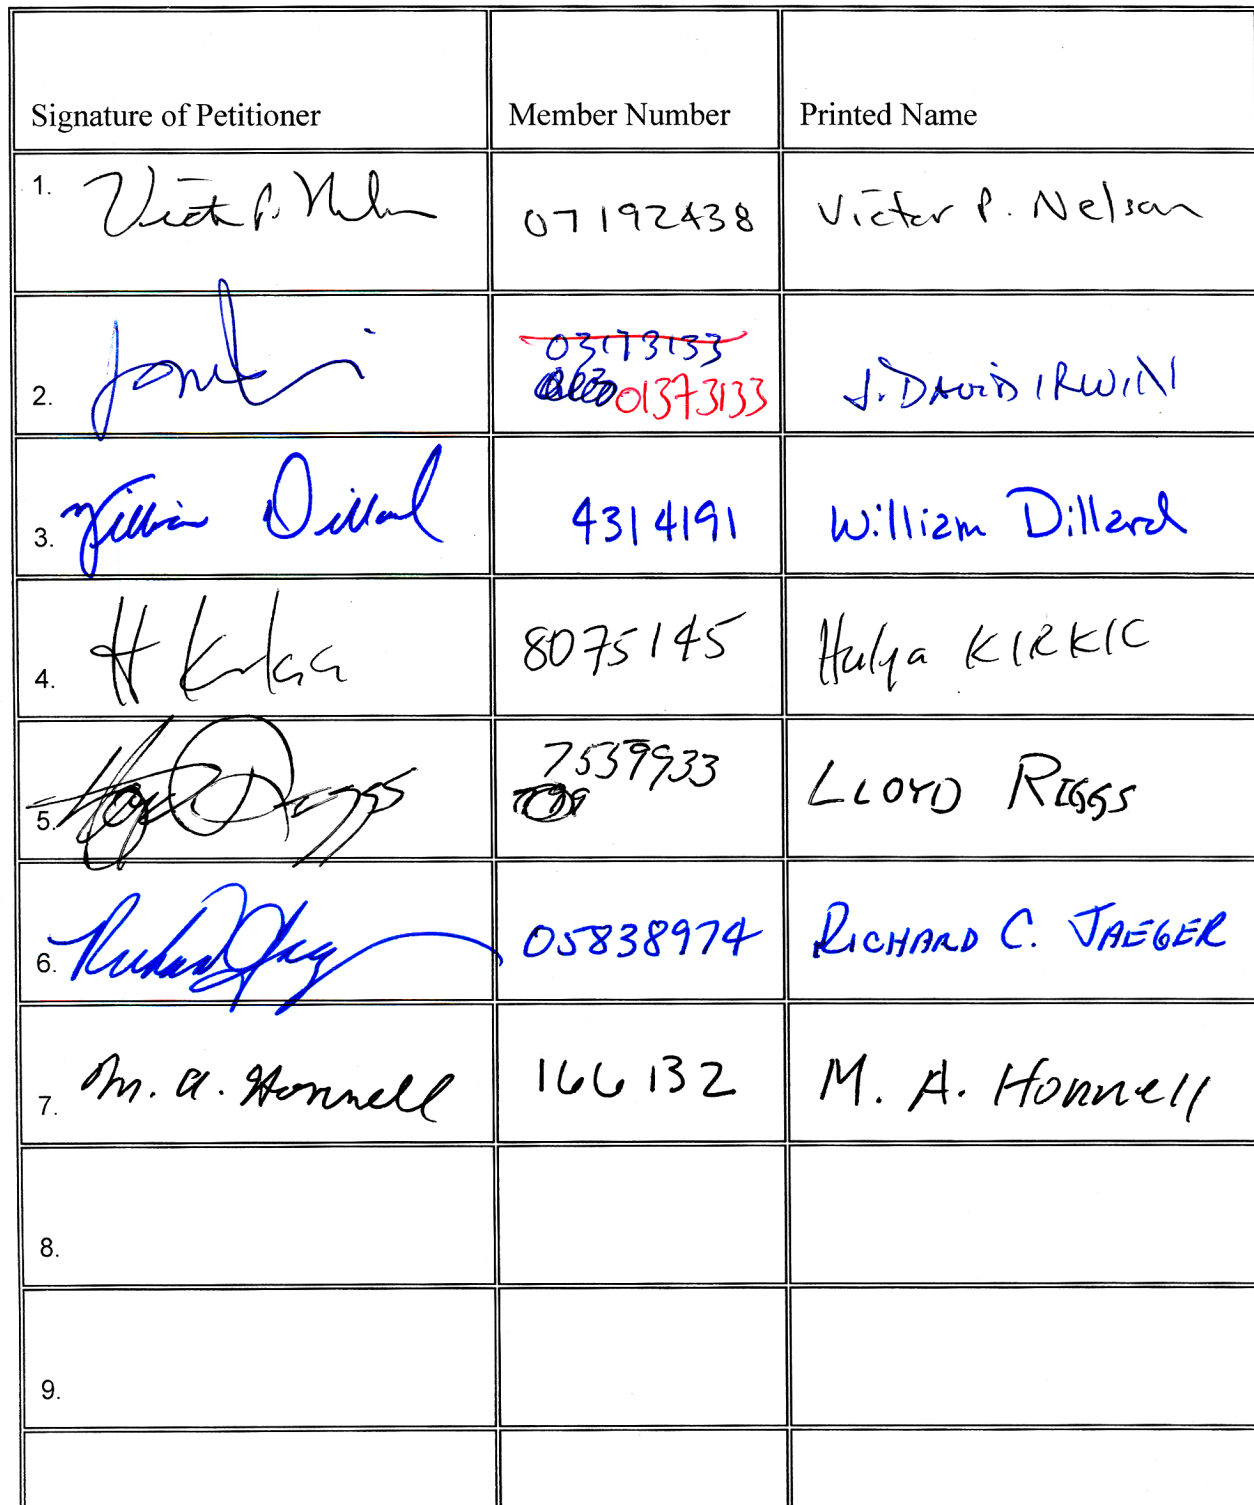 Signature of Petitioner Member Number Printed Name
1. Victor P. Nelson 07192438 Victor P. Nelson
03173133
2. 01373133 J. DAVID IRWIN
3. William Dillard 4314191 William Dillard
4. H Kirkici 8075145 Hulya KIRKIC
7539933
5. Lloyd Riggs LLOYD RIGGS
6. Richard C Jaeger 05838974 RICHARD C. JAEGER
7. M. A. Honnell 166132 M. A. Honnell
8.
9.